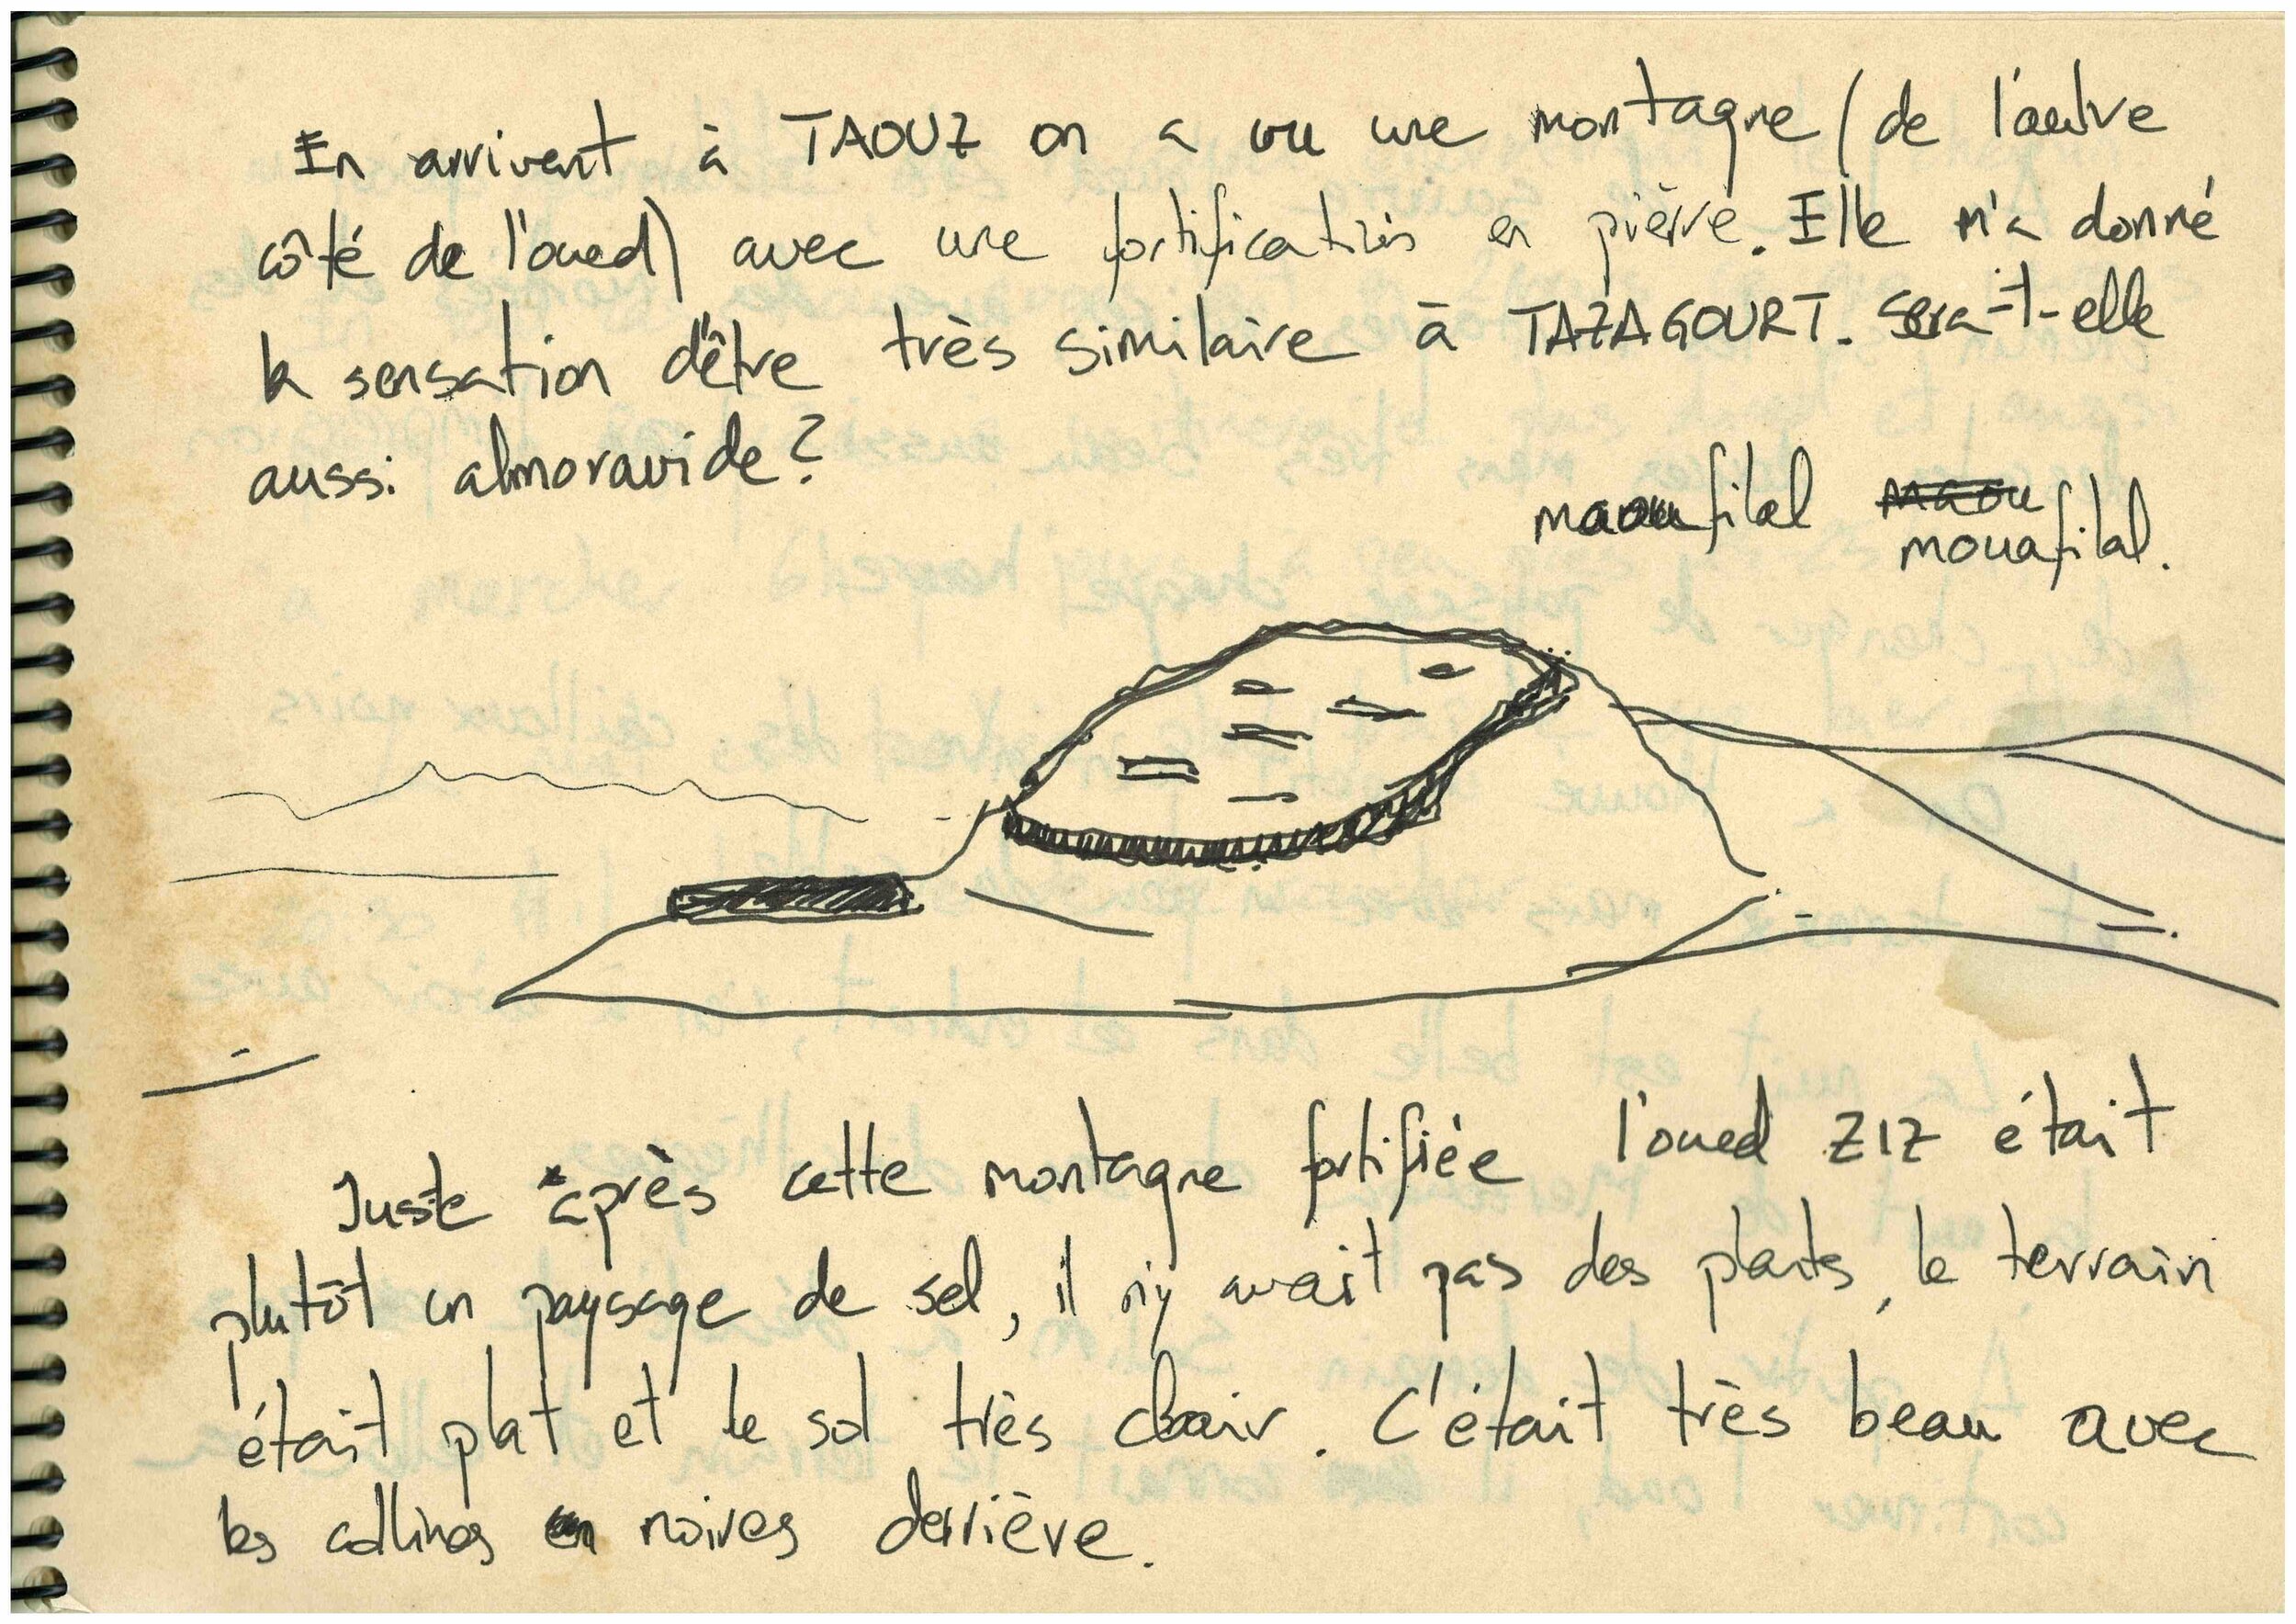 En arrivent à TAOUZ on a vu une montagne (de l'autre
côté de l'oued) avec une fortifications en pièrre. Elle m'a donné
la sensation d'être très similaire à TAZAGOURT. sera-t-elle
aussi almoravide?
maoufilal maou
mouafilal.
Juste après cette montagne fortifiée l'oued ZIZ était
plutôt un paysage de sel, il n'y avait pas des plants, le terrain
était plat et le sol très clair. C'était très beau avec
les collines en noires derrière.